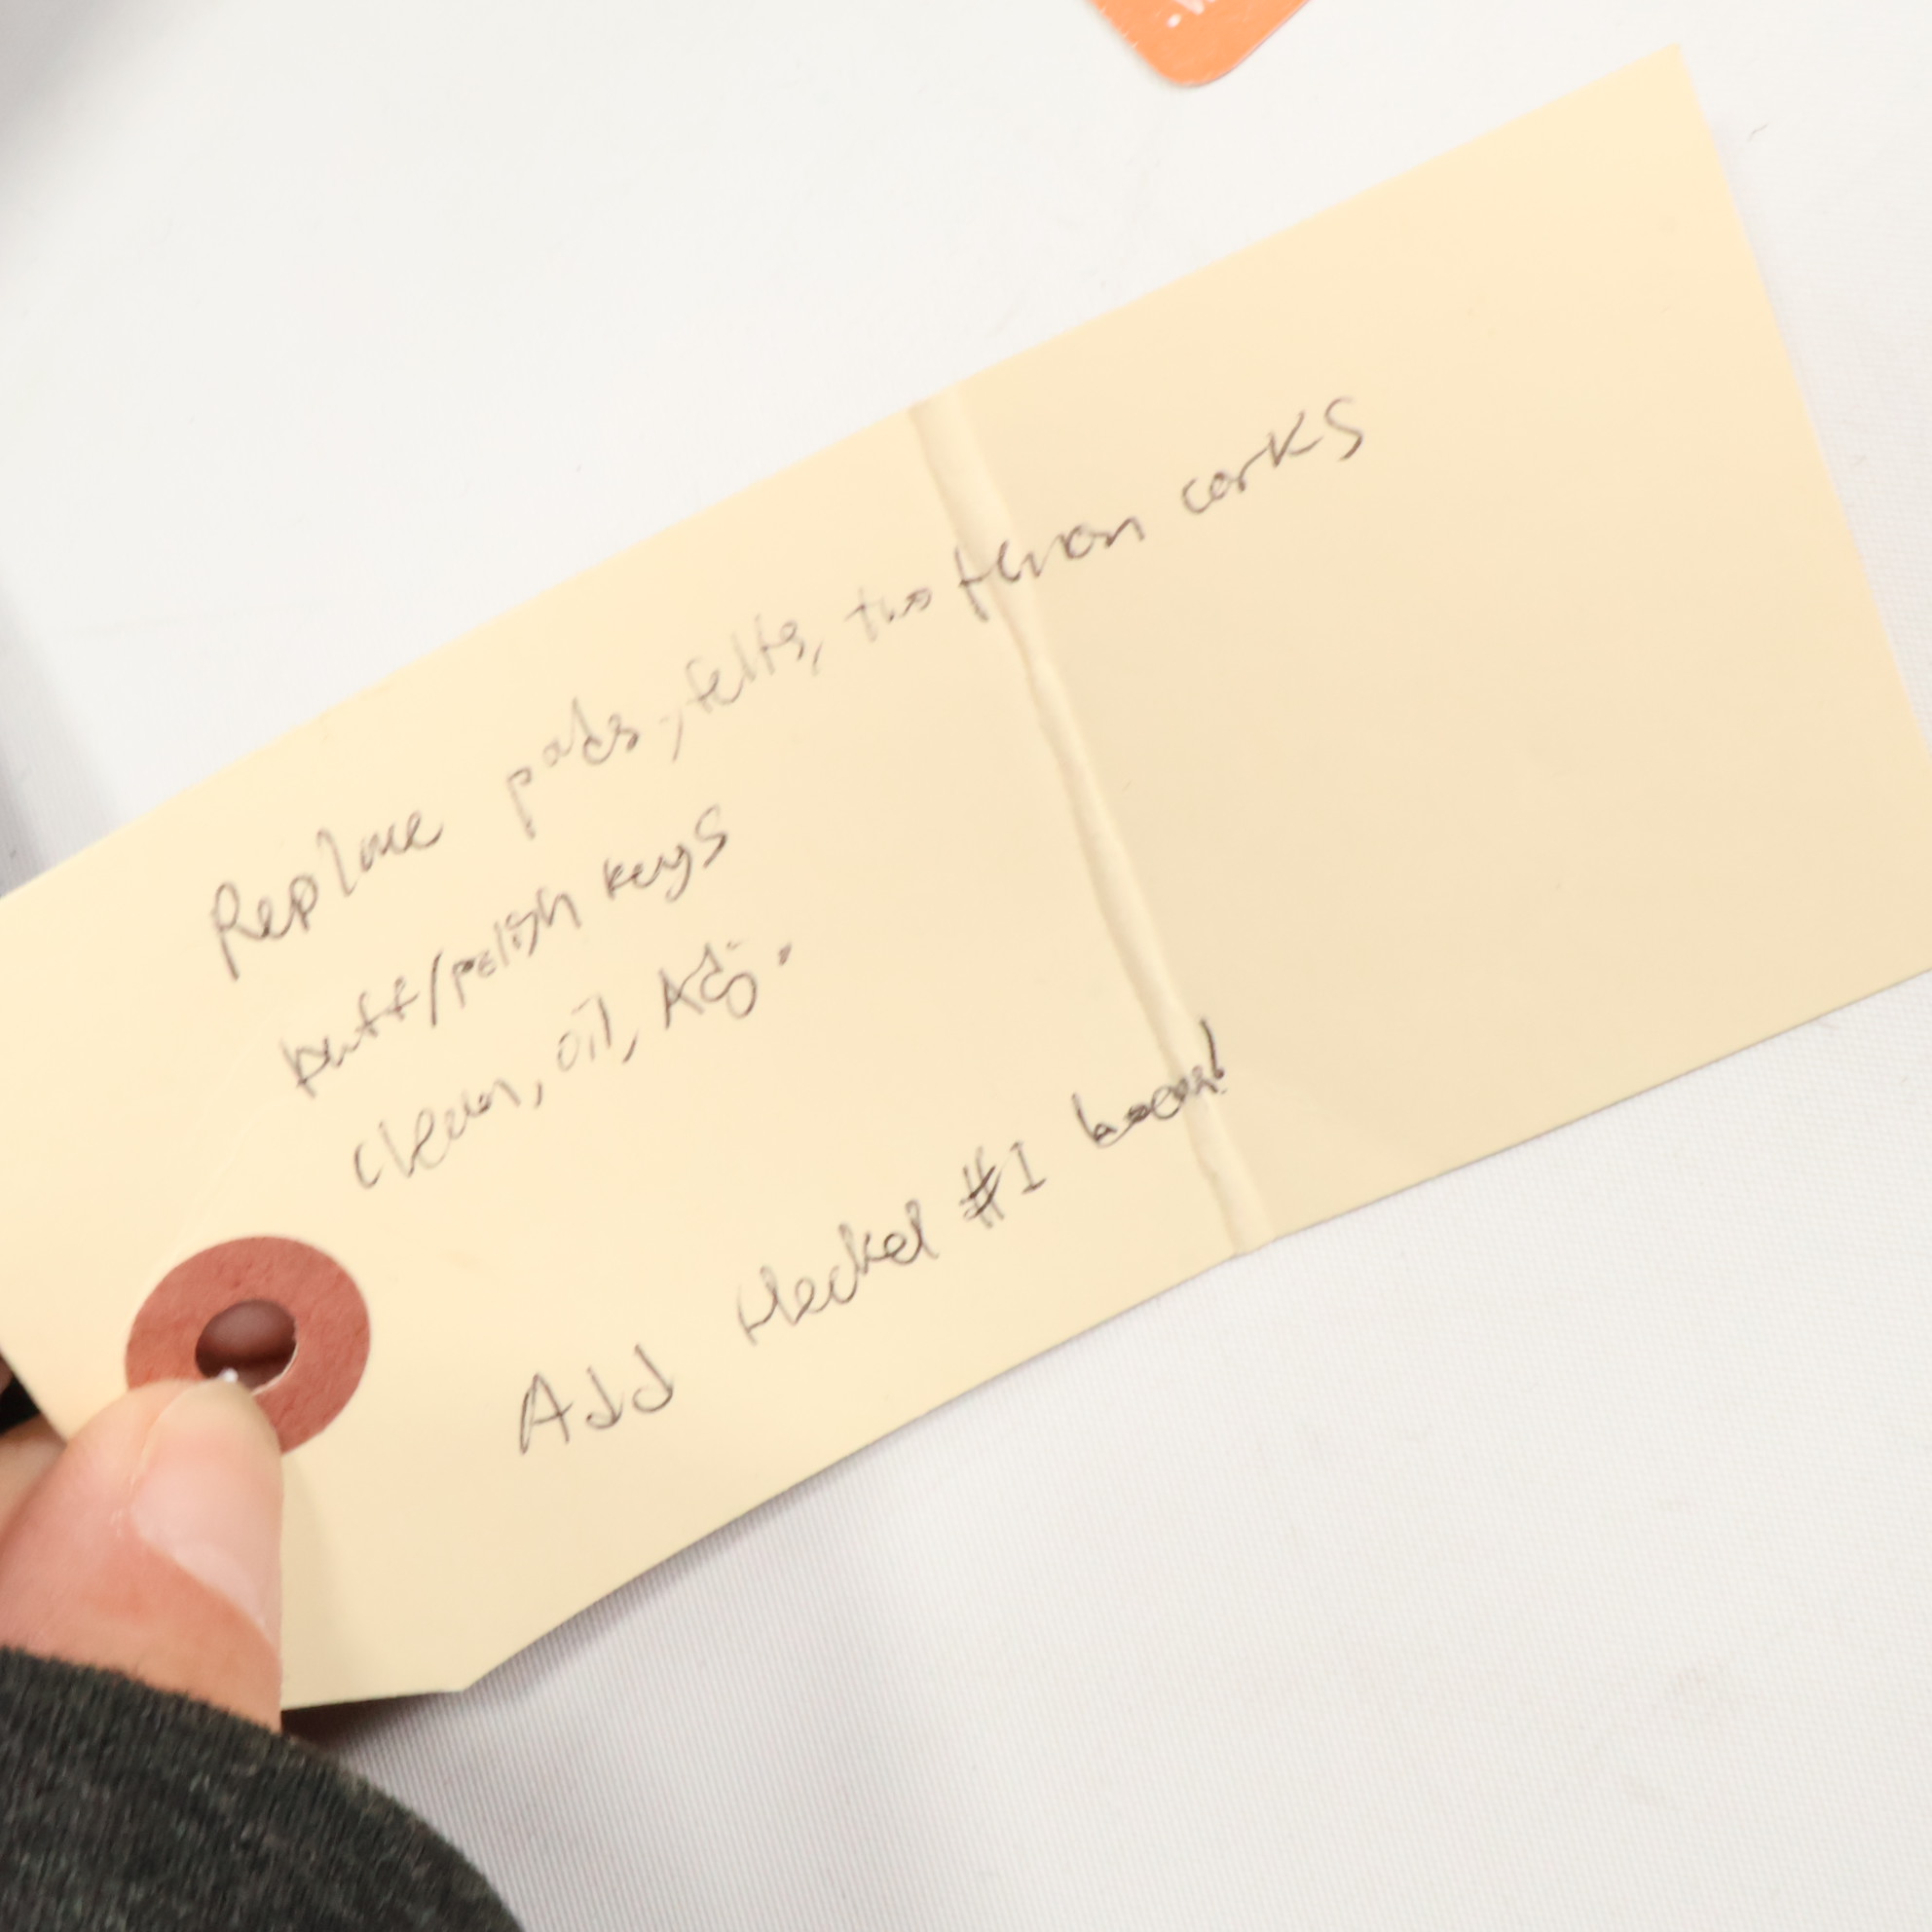 Replace pads, felts, two tenon corks
buff/polish keys
clean, oil, Adj.
Add Heckel #1 bocal